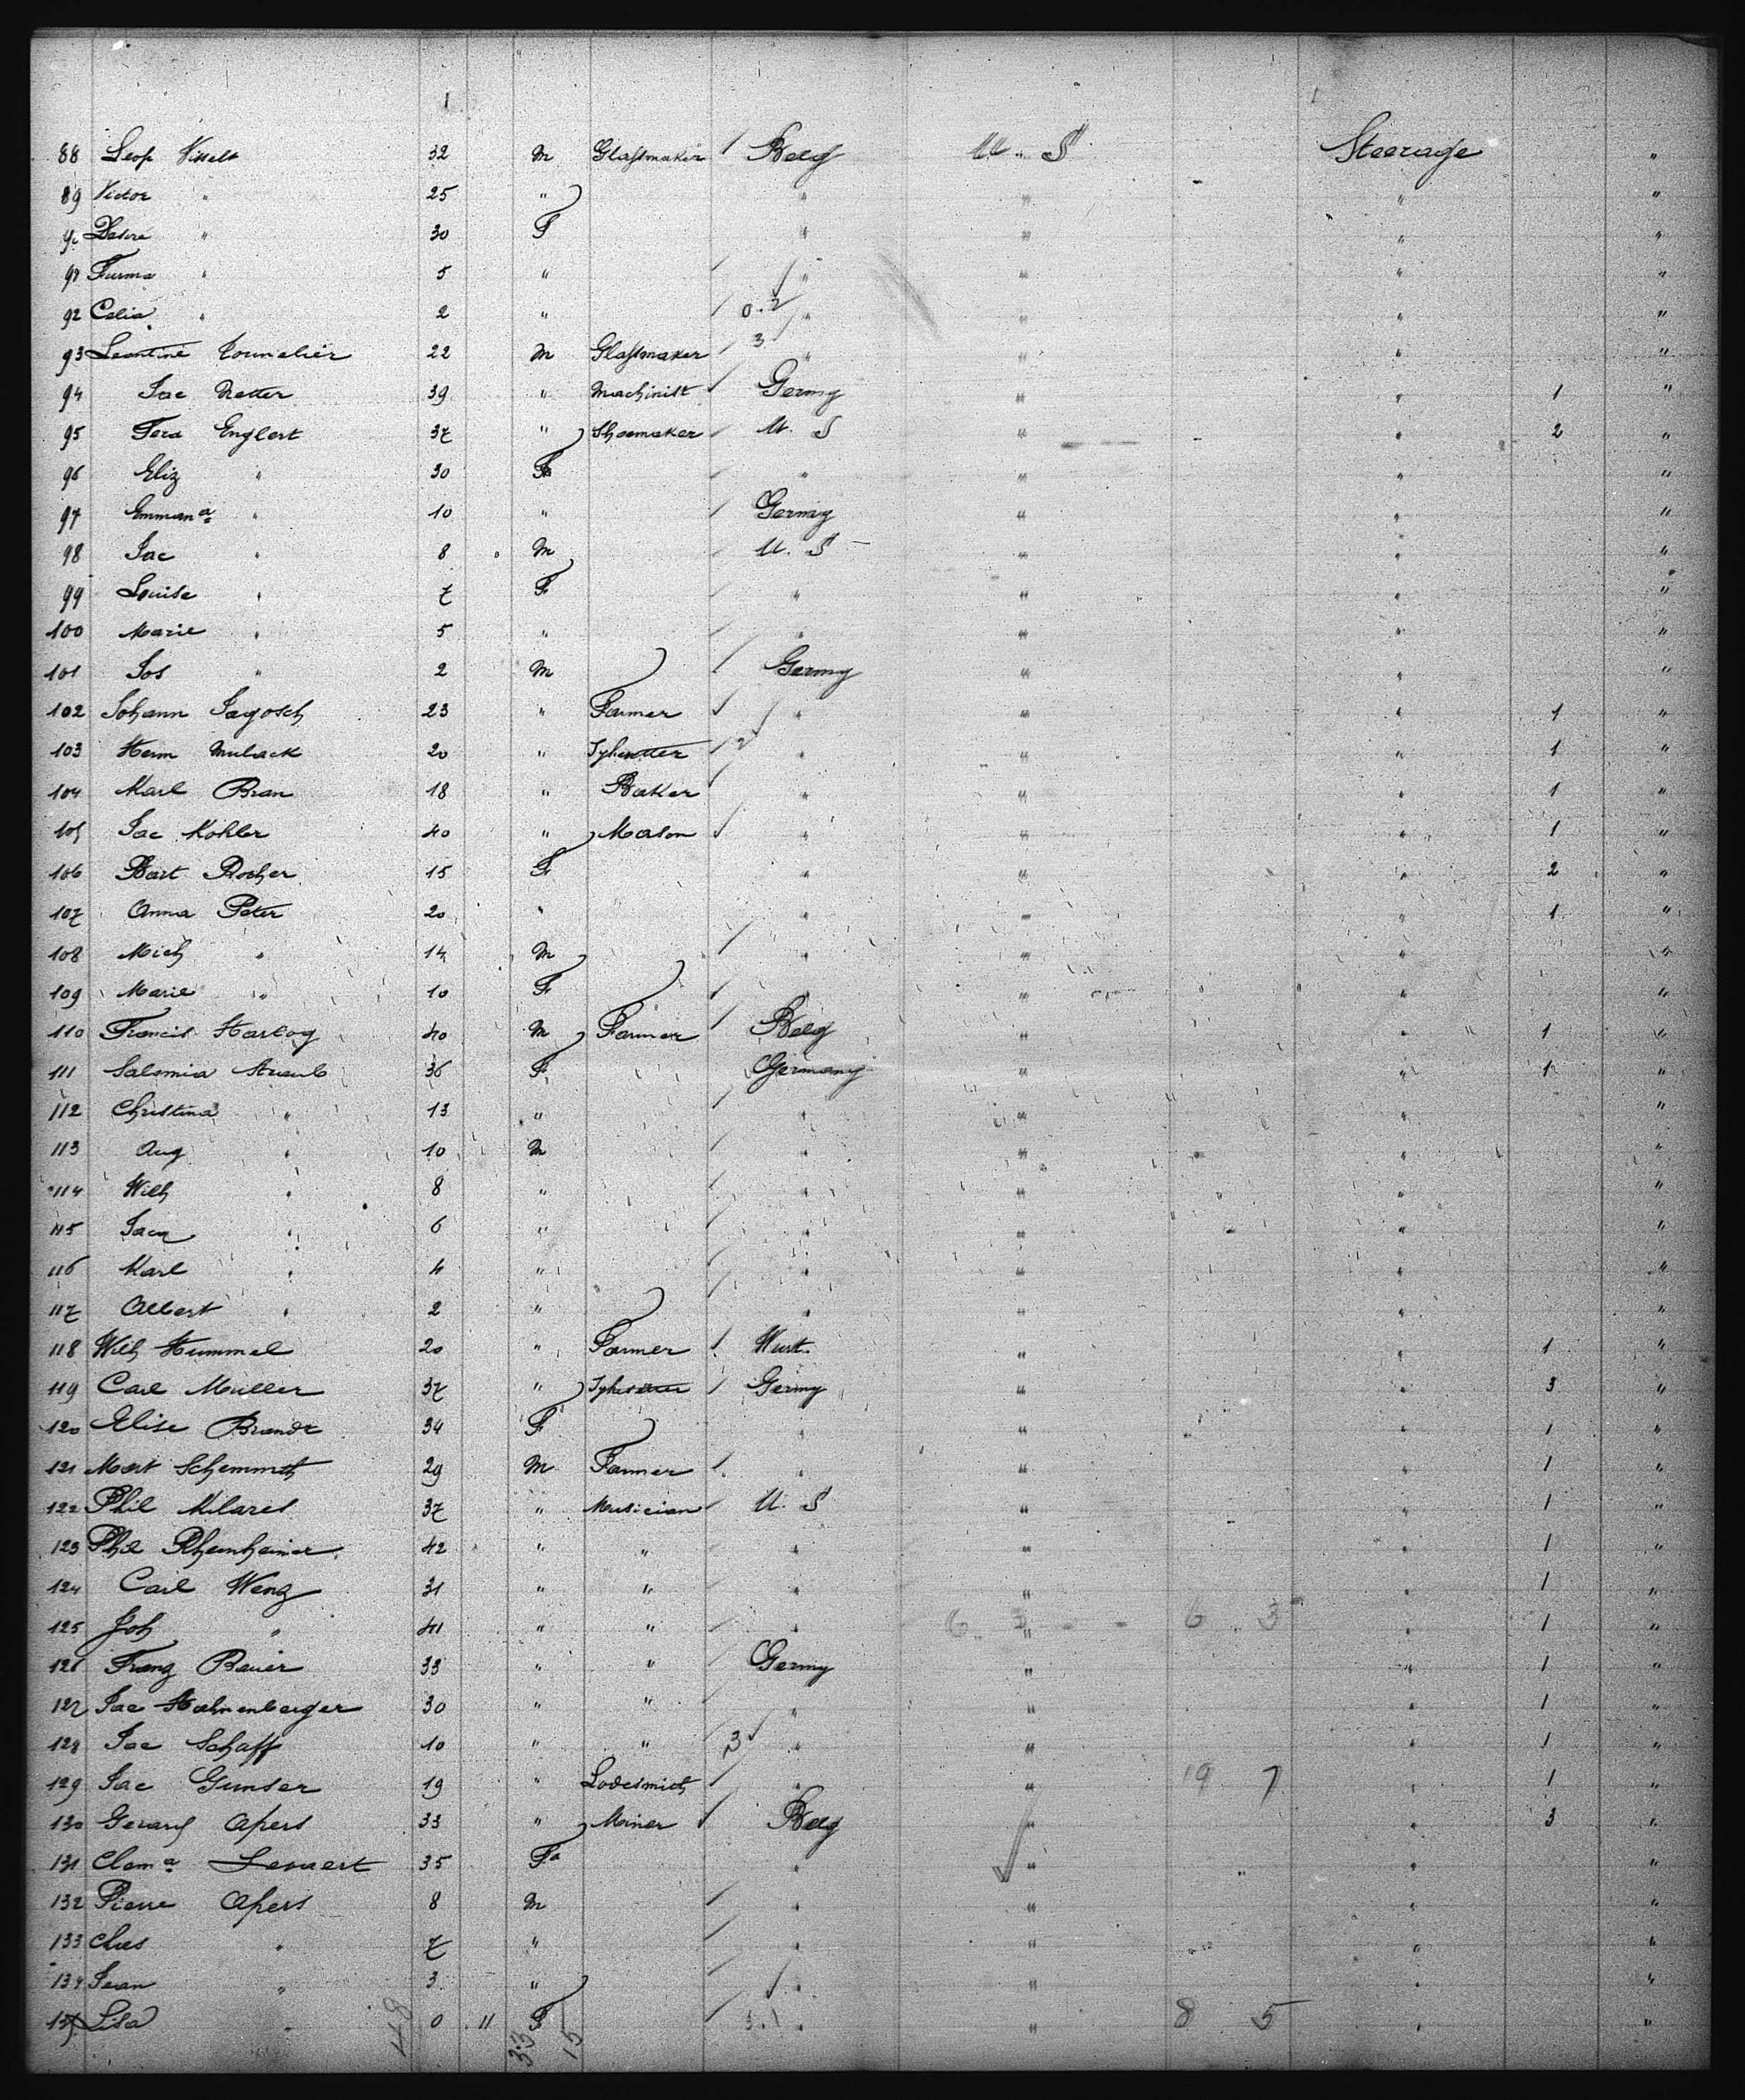 88 Leop Visselt 32 M Glassmaker Belg U. S Steerage "
89 Victor " 25 " " " " "
90 Desiré " 30 F " " " "
91 Furma " 5 " " " " "
92 Celia " 2 " " " " "
93 Leontine Tournelier 22 M Glassmaker " " " "
94 Jac Netter 39 " Machinist Germy " " 1 "
95 Ferd Englert 37 " Shoemaker U. S " " 2 "
96 Eliz " 30 F " " " "
97 Emman a " 10 " Germy " " "
98 Jac " 8 M U. S " " "
99 Louise " 7 F " " " "
100 Marie " 5 " " " " "
101 Jos " 2 M Germy " " "
102 Johann Jagosch 23 " Farmer " " " 1 "
103 Herm Mulack 20 " " " " 1 "
104 Karl Bran 18 " Baker " " " 1 "
105 Jac Kohler 40 " Mason " " " 1 "
106 Bart Rocher 15 F " " " 2 "
107 Anna Peter 20 " " " " 1 "
108 Mich " 14 M " " " "
109 Marie " 10 F " " " "
110 Francis Hartog 40 M Farmer Belg " " 1 "
111 Salomia Straub 36 F Germany " " 1 "
112 Christina " 13 " " " " "
113 Aug " 10 M " " " "
114 Wilh " 8 " " " " "
115 Jacq " 6 " " " " "
116 Karl " 4 " " " " "
117 Albert " 2 " " " " "
118 Wilh Hummel 20 " Farmer Wurt. " " 1 "
119 Carl Muller 37 " Germy " " 3 "
120 Elise Brandt 34 F " " " 1 "
121 Mart Schemmth 29 M Farmer " " " 1 "
122 Phil Kilares 37 " Musician U. S " " 1 "
123 Phil Rheinheimer 42 " " " " " 1 "
124 Carl Wenz 31 " " " " " 1 "
125 Joh " 41 " " " " " 1 "
126 Franz Bauer 33 " " Germy " " 1 "
127 Jac Hahnenberger 30 " " " " " 1 "
128 Jac Schaff 10 " " " " " 1 "
129 Jac Gunser 19 " Lodesmith " " 19 7 " 1 "
130 Gerard Apers 33 " Miner Belg " " 3 "
131 Clem a Levaert 35 F " " " "
132 Pierre Apers 8 M " " " "
133 Ches " 7 " " " " "
134 Jean " 3 " " " " "
135 Lisa " 0 11 F " " 8 5 " "
48 33 15